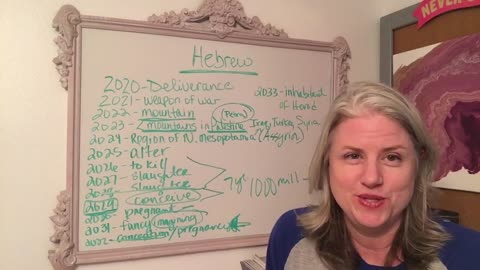 NEVER
Hebrew
2020-Deliverance
2021-weapon of war
2022-mountain
2023-mountains in Palestine Iraq, Turkey, Syria
2024-Region of N. Mesopotamia (Assyria)
2025-after
2026-to kill
2027-slaughter
slaughter
2029 conceive
pregnant
2031-fancy/
2032-conception/pregnancy
7yr
1000 mill
2033-inhabitant
of